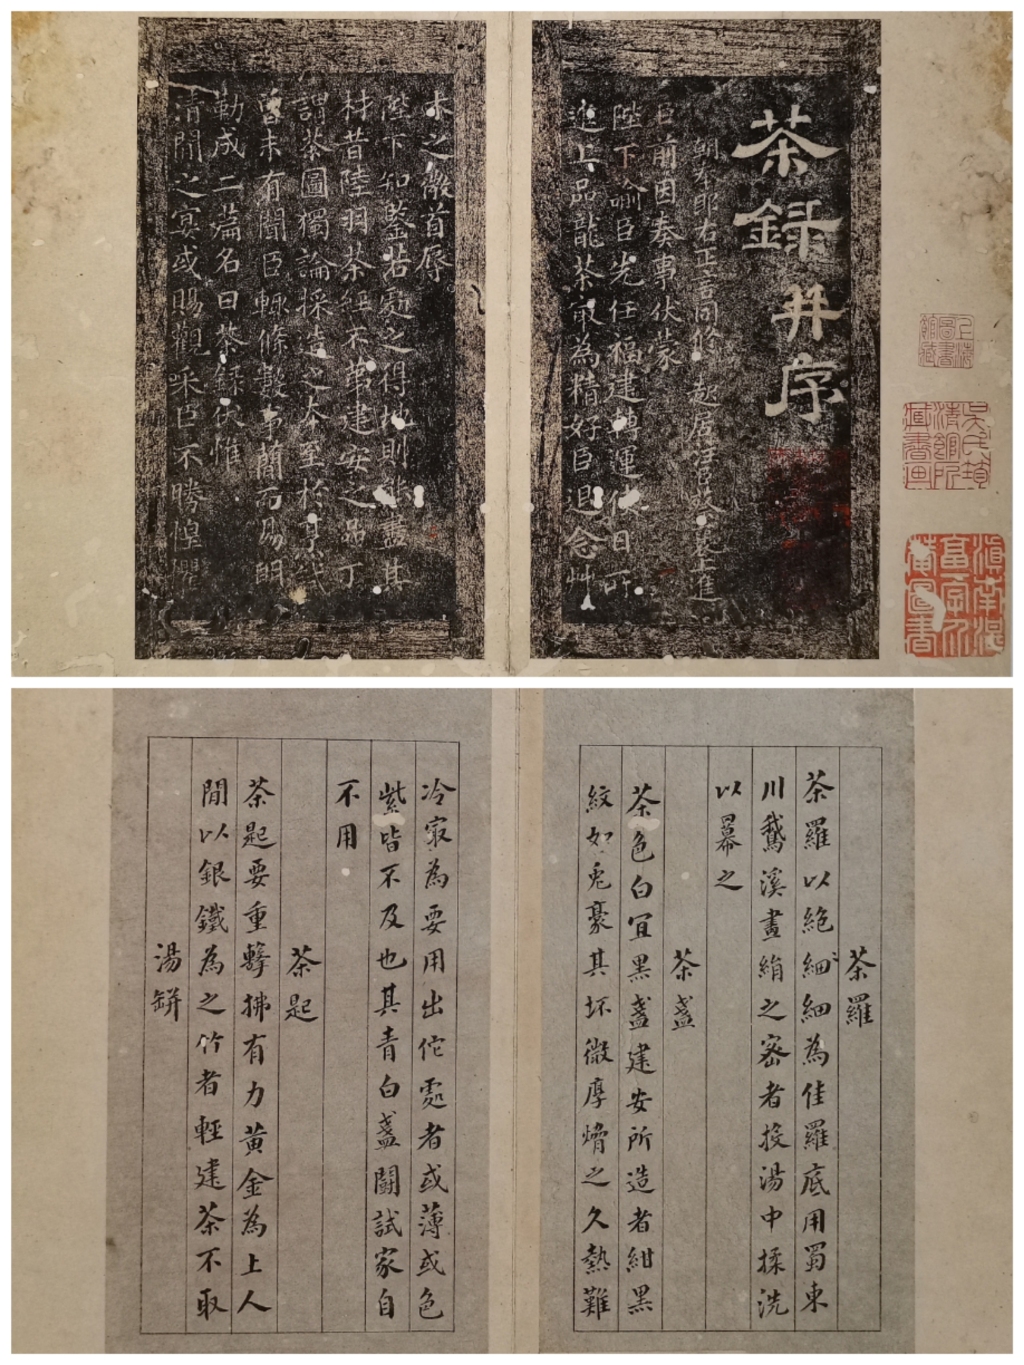 茶錄并序
朝奉郎右正言同修起居注臣蔡襄上進
臣前因奏事伏蒙
陛下諭臣先任福建轉運使日所
進上品龍茶冣為精好臣退念艸
木之微首辱
陛下知鑒若處之得地則能盡其
材昔陸羽茶經不第建安之品丁
謂茶圖獨論採造之本至於亨試
曾未有聞臣輒條數事簡而易明
勒成二篇名曰茶錄伏惟
清閒之宴或賜觀采臣不勝惶懼
上海圖書館藏
茶羅
茶羅以絶細細為佳羅底用蜀東
川鵞溪畫絹之密者投湯中揉洗
以冪之
茶盞
茶色白宜黑盞建安所造者紺黑
紋如兎豪其坏微厚熁之久熱難
冷冣為要用出佗處者或薄或色
紫皆不及也其青白盞闘試家自
不用
茶匙
茶匙要重擊拂有力黄金為上人
閒以銀鐵為之竹者輕建茶不取
湯缾